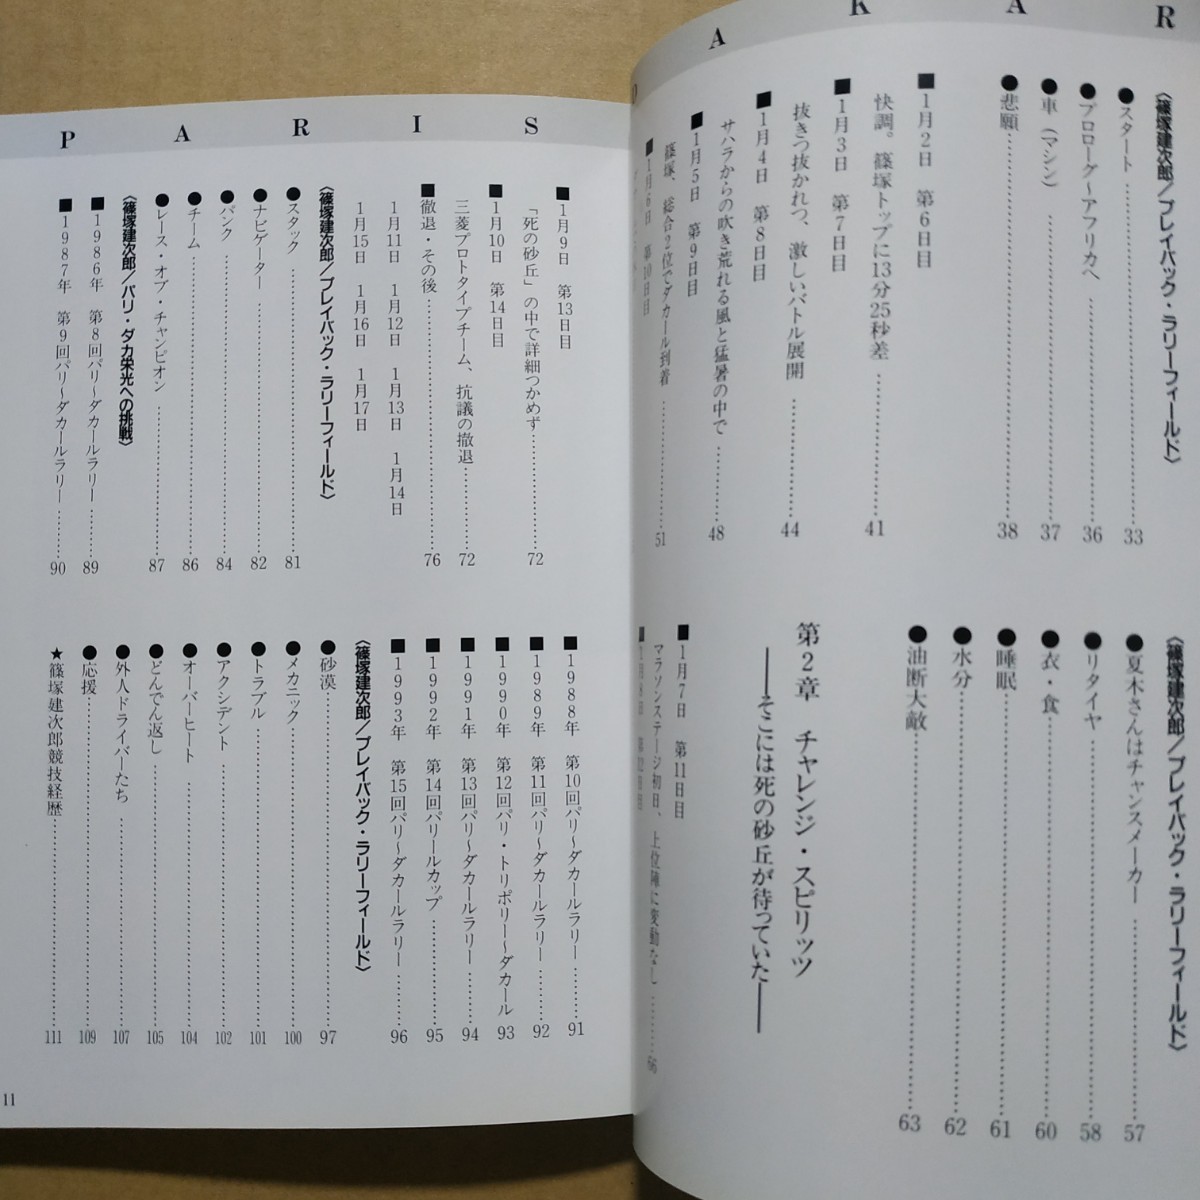 A K A R
〈篠塚建次郎/プレイバック・ラリーフィールド〉
●スタート 33
●プロローグ〜アフリカへ 36
●車（マシン） 37
●悲願 38
■1月2日 第6日目
快調。篠塚トップに13分25秒差 41
■1月3日 第7日目
抜きつ抜かれつ、激しいバトル展開 44
■1月4日 第8日目
サハラからの吹き荒れる風と猛暑の中で 48
■1月5日 第9日目
篠塚、総合2位でダカール到着 51
■1月6日 第10日目
〈篠塚建次郎/プレイバック・ラリーフィールド〉
●夏木さんはチャンスメーカー 57
●リタイヤ 58
●衣・食 60
●睡眠 61
●水分 62
●油断大敵 63
第2章 チャレンジ・スピリッツ
――そこには死の砂丘が待っていた――
■1月7日 第11日目
マラソンステージ初日、上位陣に変動なし 66
■1月8日 第12日目
P A R I S
■1月9日 第13日目
「死の砂丘」の中で詳細つかめず 72
■1月10日 第14日目
三菱プロトタイプチーム、抗議の撤退 72
■撤退・その後 76
1月11日 1月12日 1月13日 1月14日
1月15日 1月16日 1月17日
〈篠塚建次郎/プレイバック・ラリーフィールド〉
●スタック 81
●ナビゲーター 82
●パンク 84
●チーム 86
●レース・オブ・チャンピオン 87
〈篠塚建次郎/パリ・ダカ栄光への挑戦〉
■1986年 第8回パリ〜ダカールラリー 89
■1987年 第9回パリ〜ダカールラリー 90
■1988年 第10回パリ〜ダカールラリー 91
■1989年 第11回パリ〜ダカールラリー 92
■1990年 第12回パリ・トリポリ〜ダカール 93
■1991年 第13回パリ〜ダカールラリー 94
■1992年 第14回パリールカップ 95
■1993年 第15回パリ〜ダカールラリー 96
〈篠塚建次郎/プレイバック・ラリーフィールド〉
●砂漠 97
●メカニック 100
●トラブル 101
●アクシデント 102
●オーバーヒート 104
●どんでん返し 105
●外人ドライバーたち 107
●応援 109
★篠塚建次郎競技経歴 111
11